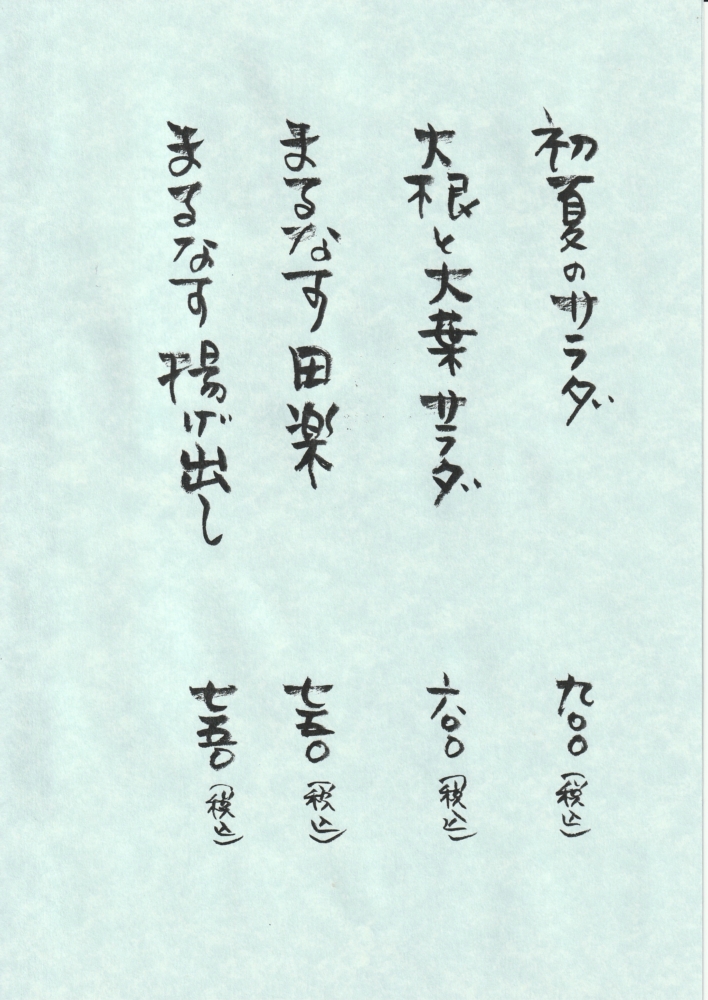 初夏のサラダ 九〇〇(税込)
大根と大葉サラダ 六〇〇(税込)
まるなす田楽 七五〇(税込)
まるなす揚げ出し 七五〇(税込)